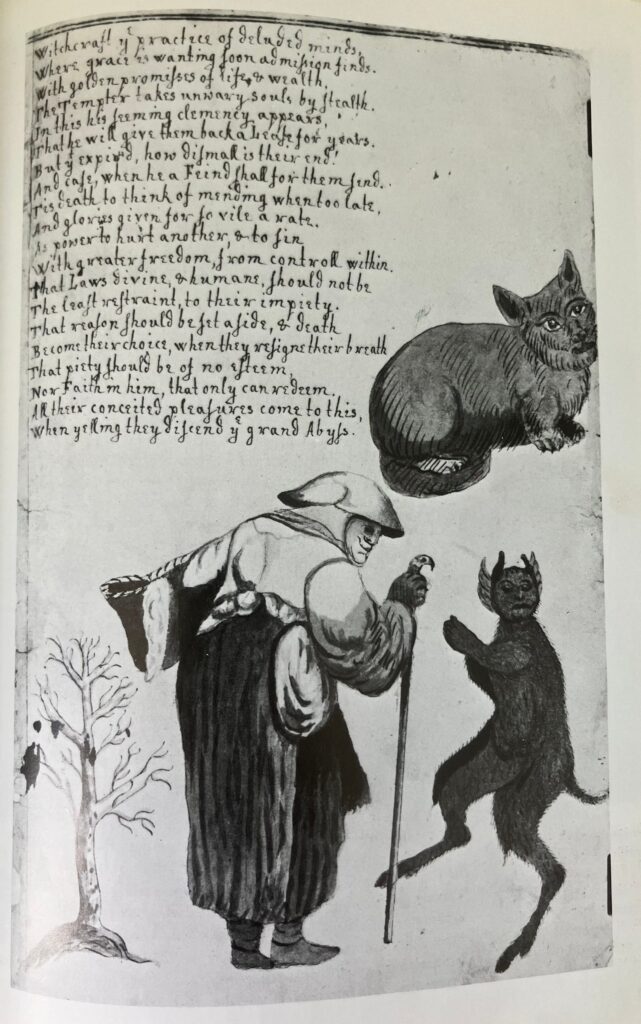 Witchcraft yᵉ practice of deluded minds,
Where grace is wanting soon admission finds.
With golden promisses of life, & wealth,
The Tempter takes unwary souls by stealth.
In this his seeming clemency appears,
That he will give them back a Lease for years.
But yᵗ expir'd, how dismall is their end!
And case, when he a Feind shall for them send.
T'is death to think of mending when too late,
And glories given for so vile a rate.
As power to hurt another, & to sin
With greater freedom, from controll within.
That Laws divine, & humane, should not be
The least restraint, to their impiety.
That reason should be set aside, & death
Become their choice, when they resigne their breath
That piety should be of no esteem,
Nor Faith in him, that only can redeem.
All their conceited pleasures come to this,
When yelling they discend yᵉ grand Abyss.